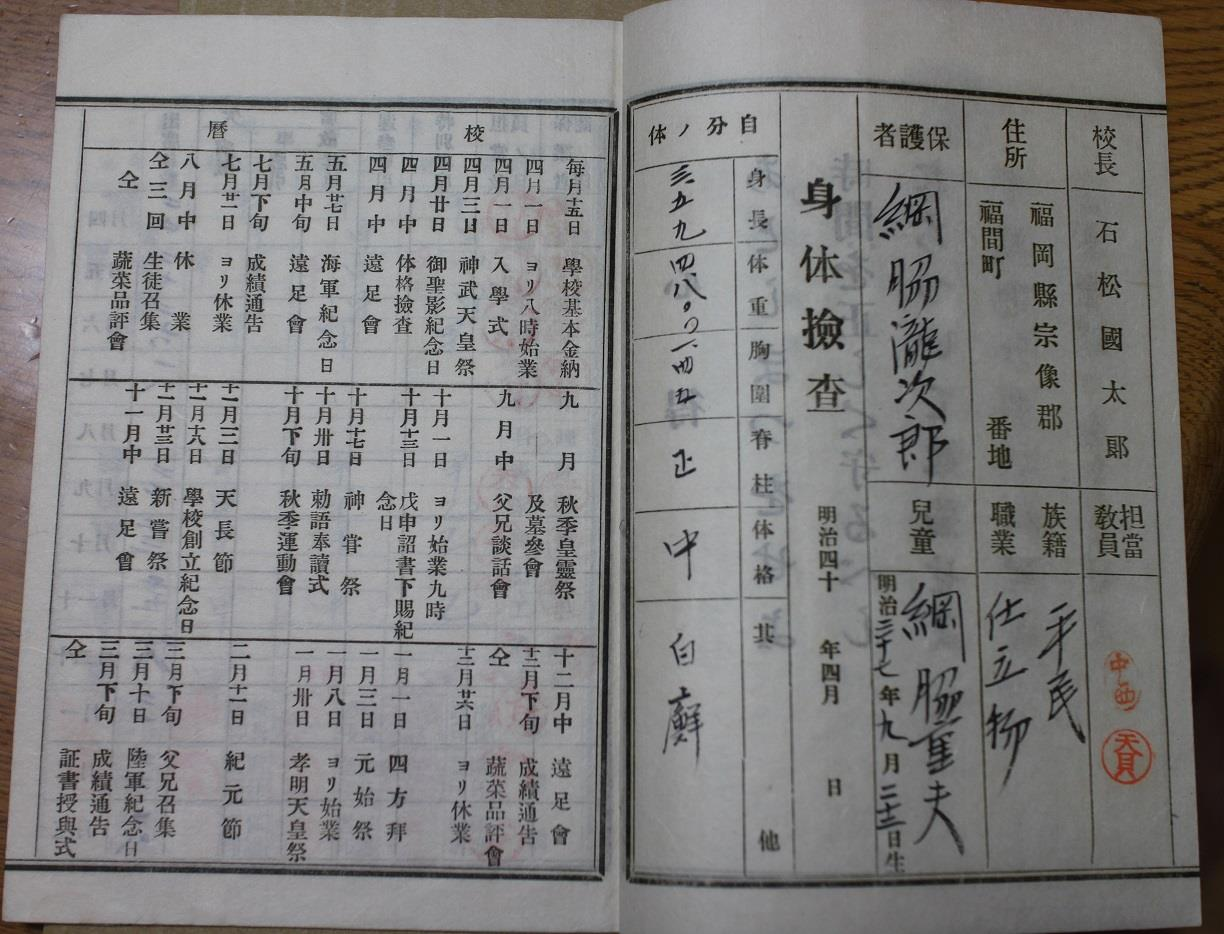 校長
石松國太郎
担當教員
中西
住所
福岡縣宗像郡
福間町
番地
族籍
職業
平民
仕立物
保護者
綱脇瀧次郎
兒童
綱脇
夫
明治三十七年九月二十三日生
身体撿査
明治四十 年四月 日
身長
体重
胸圍
脊柱
体格
其他
自分ノ体
三、五九
四八〇〇
一、四五
正
中
白癬
校曆
每月十五日 學校基本金納
四月一日 ヨリ八時始業
四月一日 入學式
四月三日 神武天皇祭
四月廿日 御聖影紀念日
四月中 体格撿査
四月中 遠足會
五月廿七日 海軍紀念日
五月中旬 遠足會
七月下旬 成績通告
七月廿一日 ヨリ休業
八月中 休業
仝三回 生徒召集
仝 蔬菜品評會
九月 秋季皇靈祭
及墓參會
九月中 父兄談話會
十月一日 ヨリ始業九時
十月十三日 戊申詔書下賜紀
念日
十月十七日 神甞祭
十月卅日 勅語奉讀式
十月下旬 秋季運動會
十一月三日 天長節
十一月十六日 學校創立紀念日
十一月廿三日 新嘗祭
十一月中 遠足會
十二月中 遠足會
十二月下旬 成績通告
仝 蔬菜品評會
十二月廿六日 ヨリ休業
一月一日 四方拜
一月三日 元始祭
一月八日 ヨリ始業
一月卅日 孝明天皇祭
二月十一日 紀元節
三月下旬 父兄召集
三月十日 陸軍紀念日
三月下旬 成績通告
仝 証書授與式